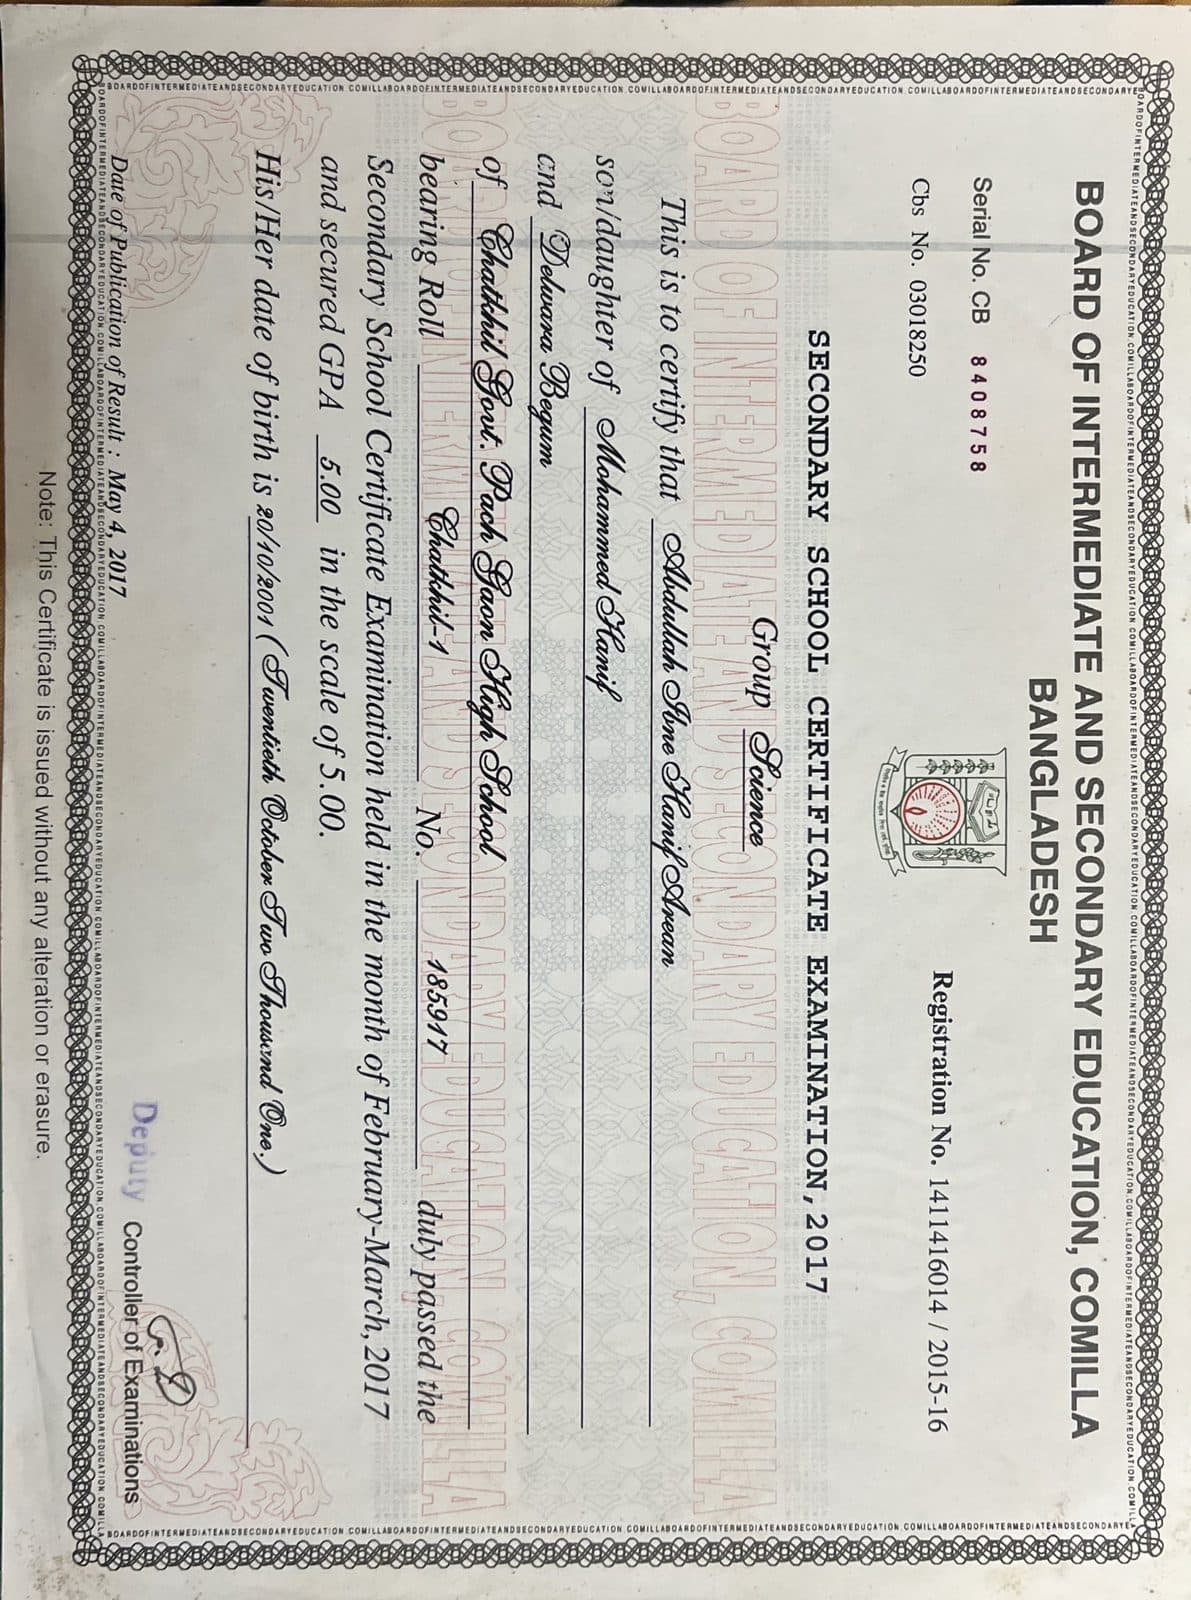 BOARD OF INTERMEDIATE AND SECONDARY EDUCATION, COMILLA
BANGLADESH
Serial No. CB 8408758
Cbs No. 03018250
Registration No. 1411416014 / 2015-16
SECONDARY SCHOOL CERTIFICATE EXAMINATION, 2017
Group Science
This is to certify that Abdullah Ibne Hanif Arean
son/daughter of Mohammed Hanif
and Delwara Begum
of Chatkhil Govt. Pach Gaon High School
bearing Roll Chatkhil-1 No. 185917 duly passed the
Secondary School Certificate Examination held in the month of February-March, 2017
and secured GPA 5.00 in the scale of 5.00.
His/Her date of birth is 20/10/2001 (Twentieth October Two Thousand One.)
Date of Publication of Result : May 4, 2017
Deputy Controller of Examinations
Note: This Certificate is issued without any alteration or erasure.
BOARD OF INTERMEDIATE AND SECONDARY EDUCATION, COMILLA
BOARD OF INTERMEDIATE AND SECONDARY EDUCATION, COMILLA